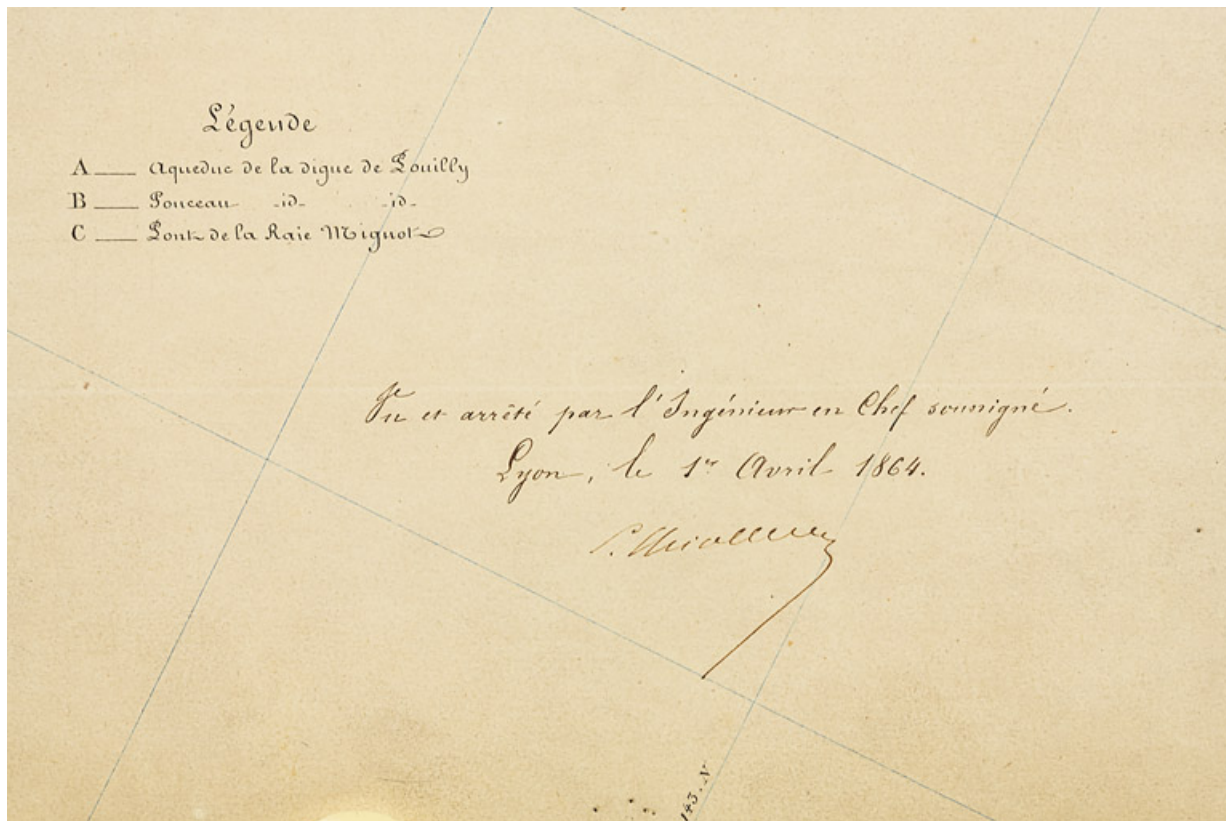 Légende
A — Aqueduc de la digue de Pouilly
B — Ponceau -id- -id-
C — Pont de la Raie Mignot
Vu et arrêté par l'Ingénieur en Chef soussigné.
Lyon, le 1er Avril 1864.
143. N